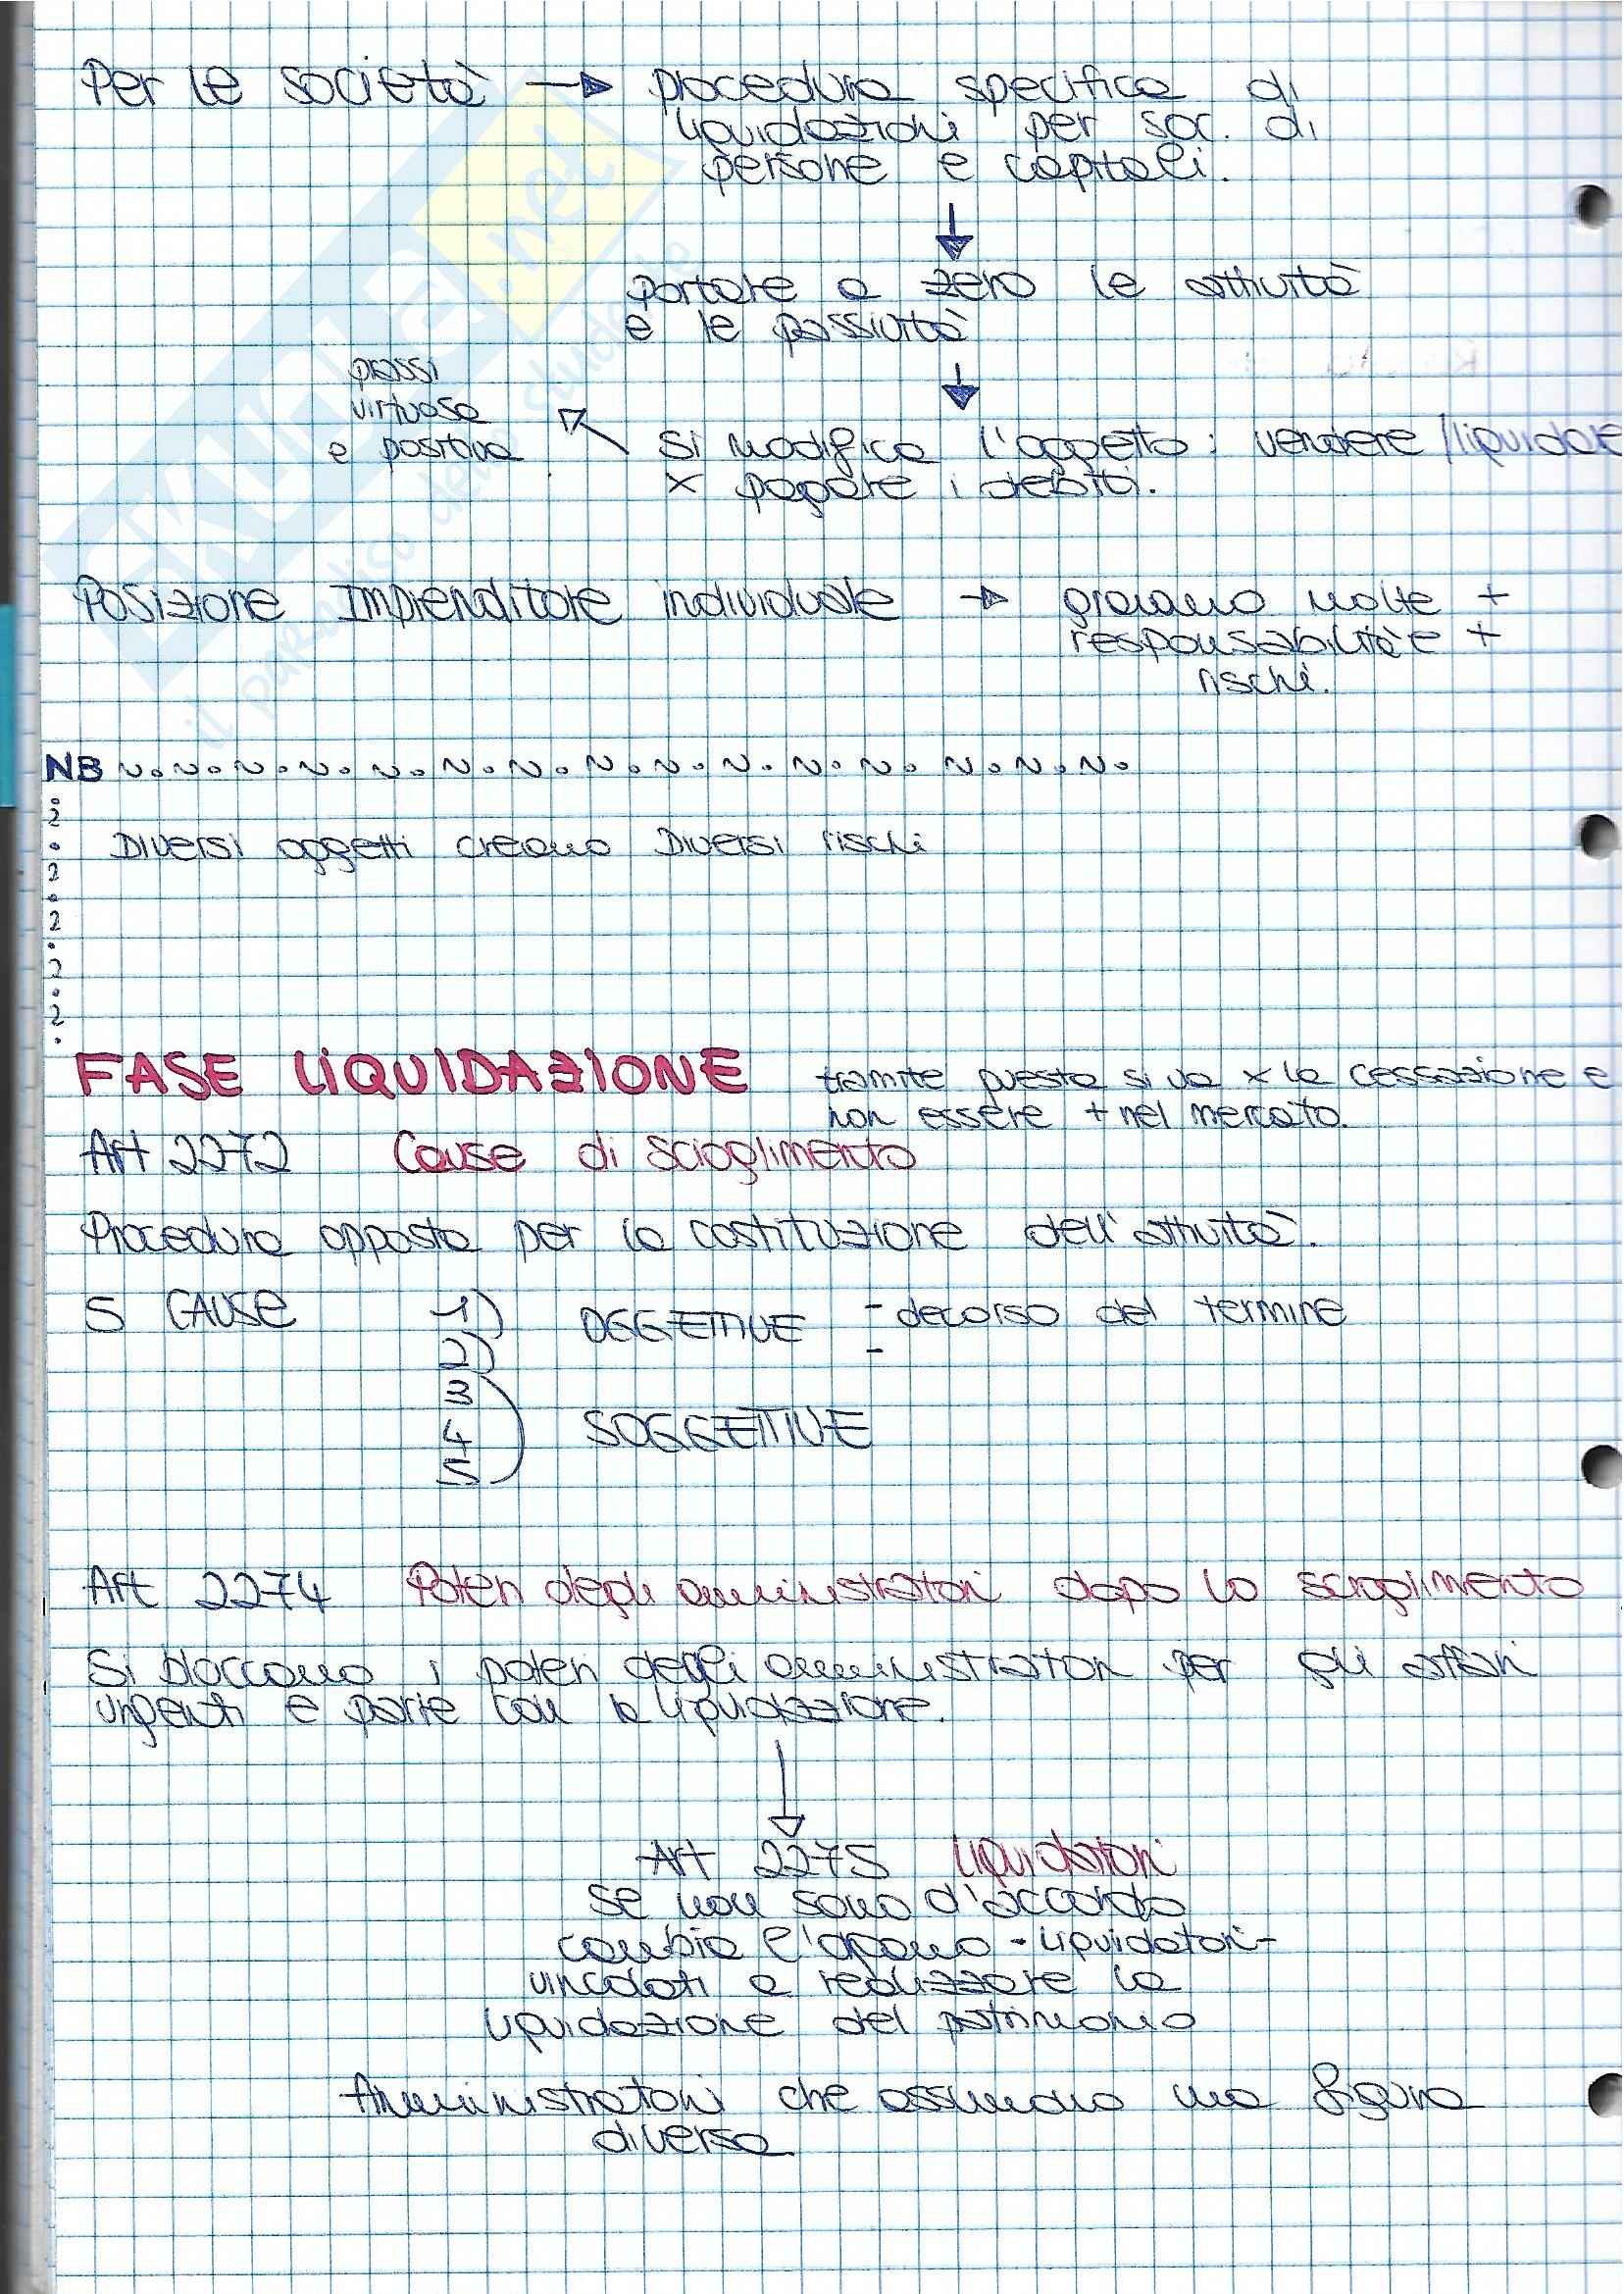 Per le società → procedura specifica di
liquidazioni per soc. di
persone e capitali.
↓
portare a zero le attività
e le passività
↓
prassi
virtuosa
e positiva
si modifica l'oggetto: vendere/liquidare
x pagare i debiti.
Posizione Imprenditore individuale → gravano molte +
responsabilità e +
rischi.
NB
Diversi oggetti creano Diversi rischi
FASE LIQUIDAZIONE tramite questa si va x la cessazione e
non essere + nel mercato.
Art 2272 Cause di scioglimento
Procedura opposta per la costituzione dell'attività.
5 CAUSE 1) OGGETTIVE - decorso del termine
2) -
3
4 SOGGETTIVE
5
Art 2274 Poteri degli amministratori dopo lo scioglimento
Si bloccano i poteri degli amministratori per gli affari
urgenti e parte con la liquidazione.
↓
Art 2275 Liquidatori
se non sono d'accordo
cambia l'organo - liquidatori -
vincolati a realizzare la
liquidazione del patrimonio
Amministratori che assumono una figura
diversa
SKUOLA.net
il paradiso dello studente